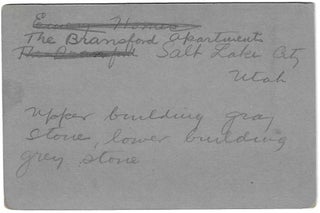 Emery Homes
The Bransford Apartments
The Bransford Salt Lake City
Utah
Upper building gray
stone, lower building
grey stone